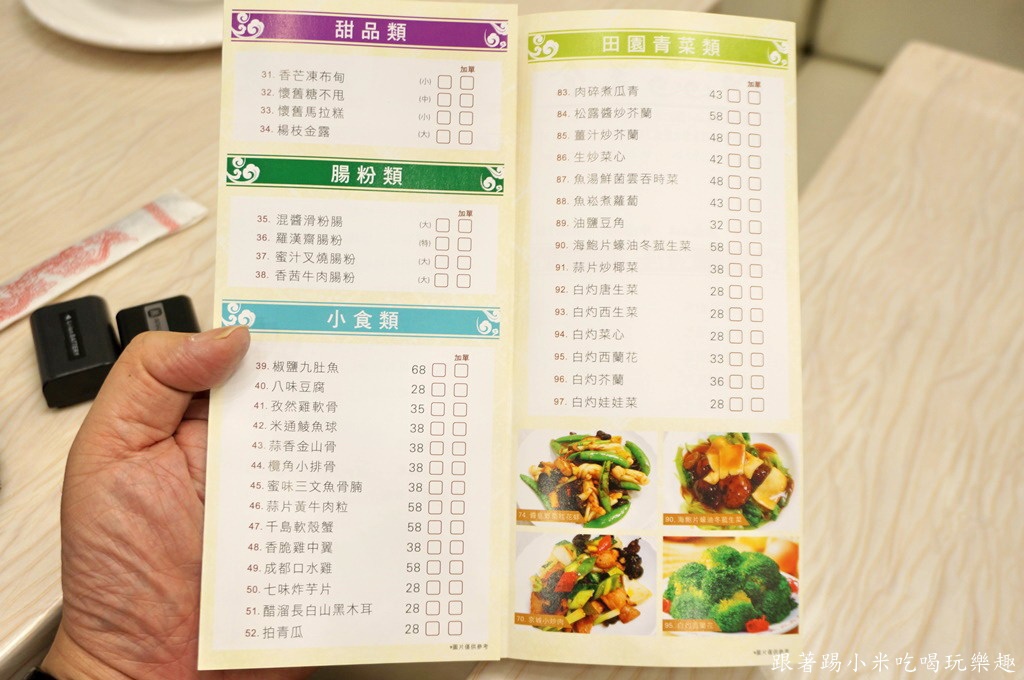 甜品類
加單
31. 香芒凍布甸 (小)
32. 懷舊糖不甩 (中)
33. 懷舊馬拉糕 (小)
34. 楊枝金露 (大)
腸粉類
加單
35. 混醬滑粉腸 (大)
36. 羅漢齋腸粉 (特)
37. 蜜汁叉燒腸粉 (大)
38. 香茜牛肉腸粉 (大)
小食類
加單
39. 椒鹽九肚魚 68
40. 八味豆腐 28
41. 孜然雞軟骨 35
42. 米通鯪魚球 38
43. 蒜香金山骨 38
44. 欖角小排骨 38
45. 蜜味三文魚骨腩 38
46. 蒜片黃牛肉粒 58
47. 千島軟殼蟹 58
48. 香脆雞中翼 38
49. 成都口水雞 58
50. 七味炸芋片 28
51. 醋溜長白山黑木耳 28
52. 拍青瓜 28
*圖片僅供參考
田園青菜類
加單
83. 肉碎煮瓜青 43
84. 松露醬炒芥蘭 58
85. 薑汁炒芥蘭 48
86. 生炒菜心 42
87. 魚湯鮮菌雲吞時菜 48
88. 魚崧煮蘿蔔 43
89. 油鹽豆角 32
90. 海鮑片蠔油冬菰生菜 58
91. 蒜片炒椰菜 38
92. 白灼唐生菜 28
93. 白灼西生菜 28
94. 白灼菜心 28
95. 白灼西蘭花 33
96. 白灼芥蘭 36
97. 白灼娃娃菜 28
74.
90. 海鮑片蠔油冬菰生菜
70.
95. 白灼西蘭花
*圖片僅供參考
跟著踢小米吃喝玩樂趣